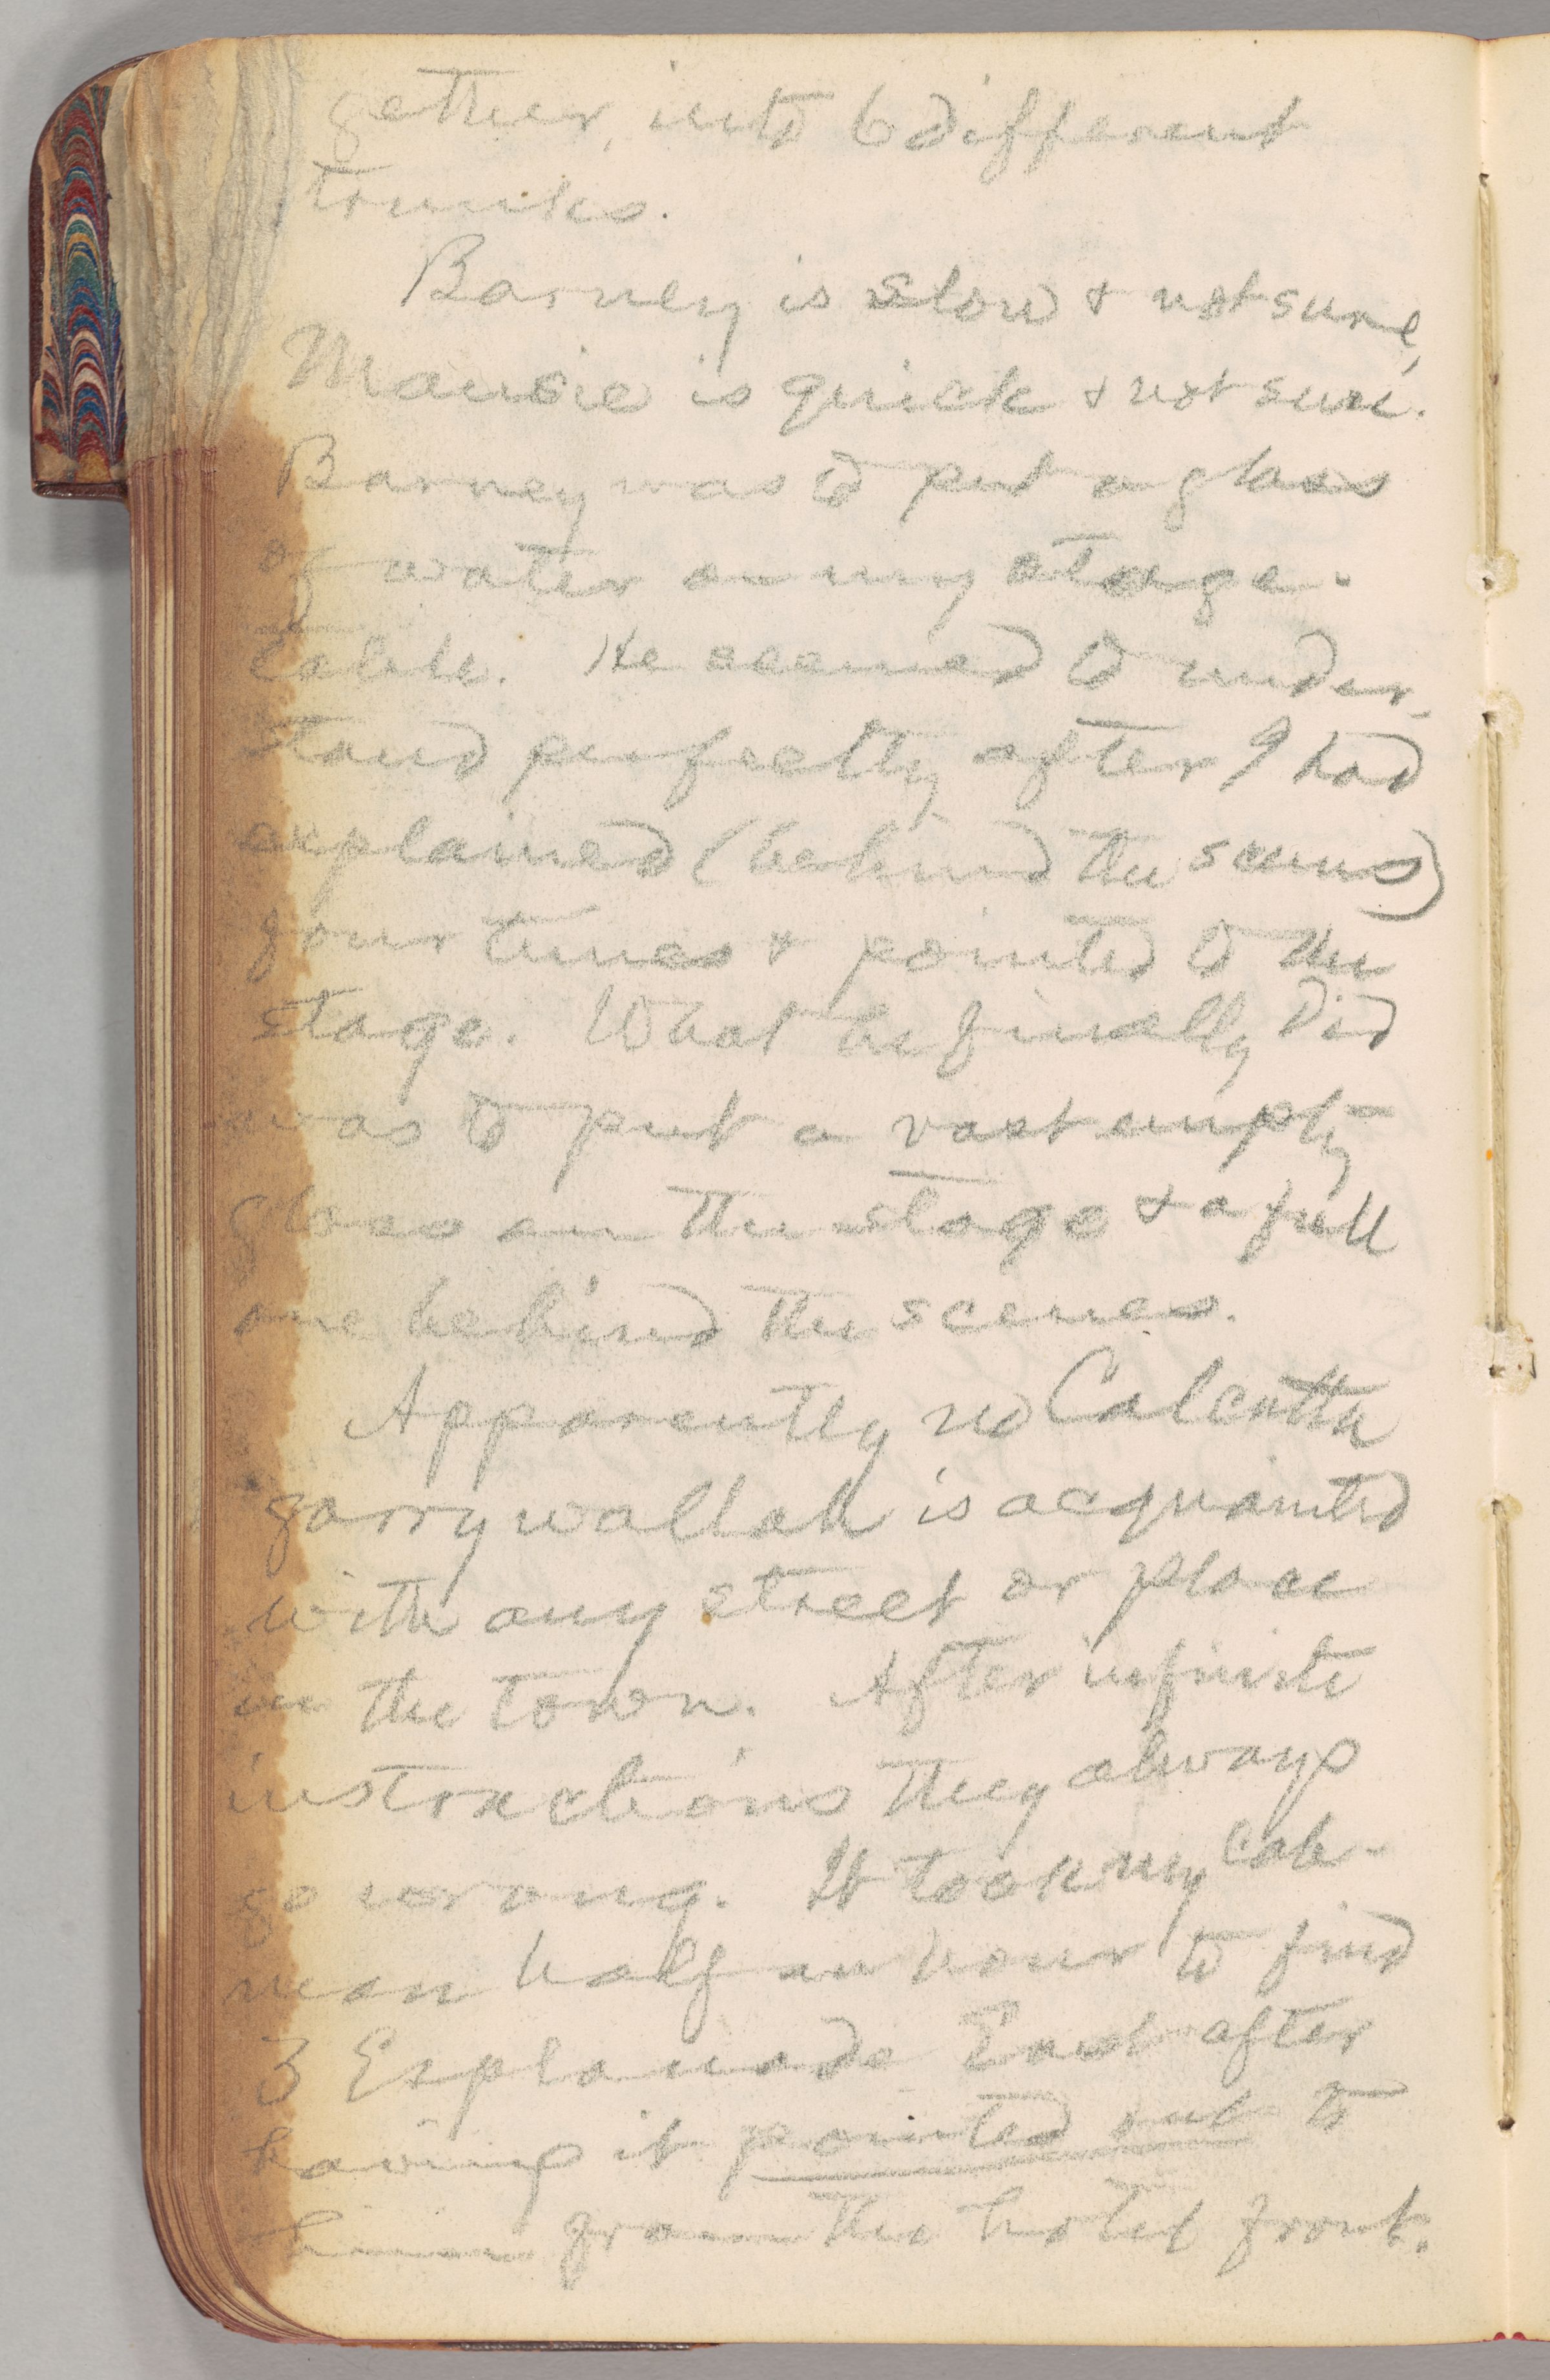 gether, into 6 different
trunks.
Barney is slow & not sure,
Mousie is quick & not sure.
Barney was to put a glass
of water on my stage-
table. He seemed to under-
stand perfectly after I had
explained (behind the scenes)
four times & pointed to the
stage. What he finally did
was to put a vast empty
glass on the stage & a full
one behind the scenes.
Apparently no Calcutta
garrywallah is acquainted
with any street or place
in the town. After infinite
instructions they always
go wrong. It took my cab-
man half an hour to find
3 Esplanade East after
having it pointed out to
him from the hotel front.